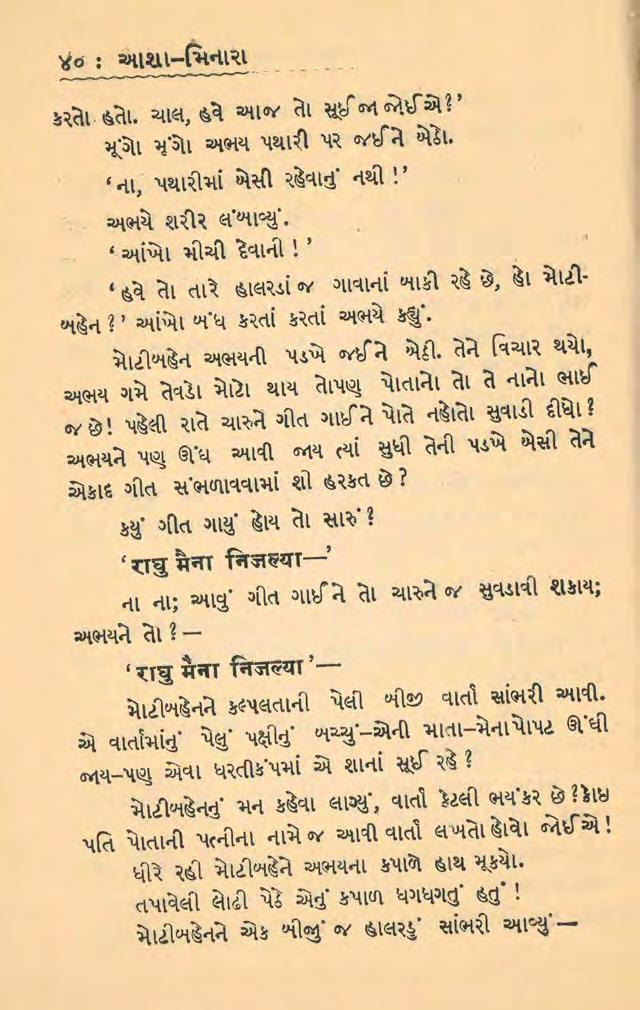 ૪૦ : આશા-મિનારા
કરતો હતો. ચાલ, હવે આજ તો સૂઈ જા જોઈએ?’
મૂંગો મૂંગો અભય પથારી પર જઈને બેઠો.
‘ના, પથારીમાં બેસી રહેવાનું નથી !’
અભયે શરીર લંબાવ્યું.
‘આંખો મીચી દેવાની ! ’
‘હવે તો તારે હાલરડાં જ ગાવાનાં બાકી રહે છે, હો મોટી-
બહેન ?’ આંખો બંધ કરતાં કરતાં અભયે કહ્યું.
મોટીબહેન અભયની પડખે જઈને બેઠી. તેને વિચાર થયો,
અભય ગમે તેવડો મોટો થાય તોપણ પોતાનો તો તે નાનો ભાઈ
જ છે! પહેલી રાતે ચારુને ગીત ગાઈને પોતે નહોતો સુવાડી દીધો ?
અભયને પણ ઊંઘ આવી જાય ત્યાં સુધી તેની પડખે બેસી તેને
એકાદ ગીત સંભળાવવામાં શી હરકત છે ?
કયું ગીત ગાયું હોય તો સારું ?
‘राघु मैना निजल्या—’
ના ના; આવું ગીત ગાઈને તો ચારુને જ સુવડાવી શકાય;
અભયને તો ?—
‘राघु मैना निजल्या’—
મોટીબહેનને કલ્પલતાની પેલી બીજી વાર્તા સાંભરી આવી.
એ વાર્તામાંનું પેલું પક્ષીનું બચ્ચું—એની માતા-મેનાપોપટ ઊંઘી
જાય—પણ એવા ધરતીકંપમાં એ શાનાં સૂઈ રહે ?
મોટીબહેનનું મન કહેવા લાગ્યું, વાર્તા કેટલી ભયંકર છે ? કોઇ
પતિ પોતાની પત્નીના નામે જ આવી વાર્તા લખતો હોવો જોઈએ !
ધીરે રહી મોટીબહેને અભયના કપાળે હાથ મૂકયો.
તપાવેલી લોઢી પેઠે એનું કપાળ ધગધગતું હતું !
મોટીબહેનને એક બીજું જ હાલરડું સાંભરી આવ્યું —